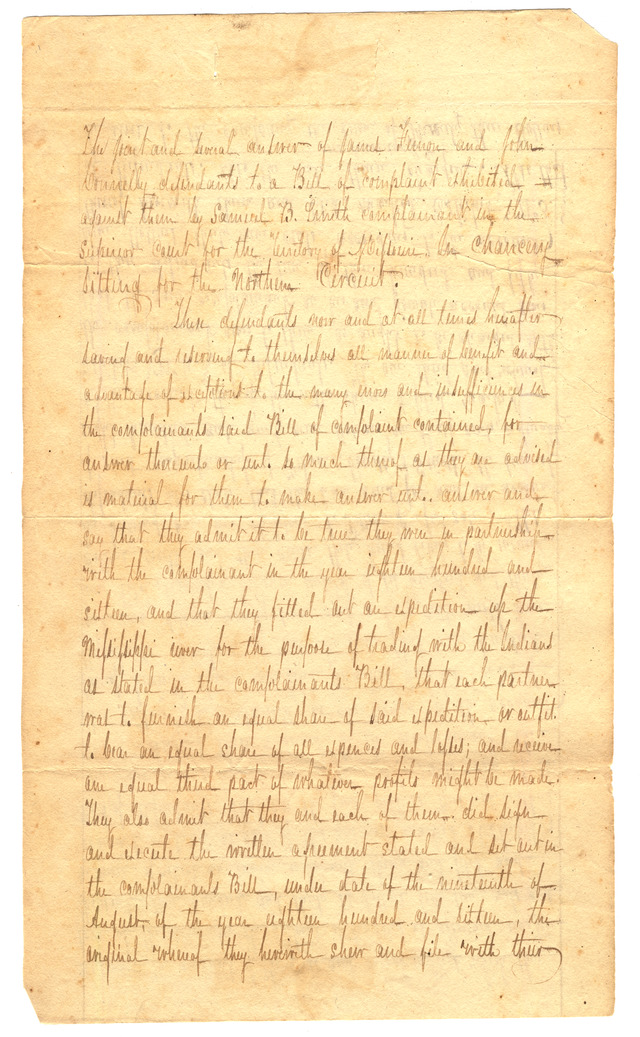 The joint and several answer of James Tennon and John
Donnelly defendants to a Bill of complaint exhibited
against them by Samuel B. Smith complainant in the
superior court for the Territory of Missouri. In Chancery
sitting for the Northern Circuit.
These defendants now and at all times hereafter
saving and reserving to themselves all manner of benefit and
advantage of exceptions to the many errors and insufficiences in
the complainants said Bill of complaint contained, for
answer thereunto or unto so much thereof as they are advised
is material for them to make answer unto. answer and
say that they admit it to be true they were in partnership
with the complainant in the year eighteen hundred and
sixteen, and that they fitted out an expedition up the
Mississippi river for the purpose of trading with the Indians
as stated in the complainants Bill, that each partner
was to furnish an equal share of said expedition or outfit.
to bear an equal share of all expences and losses; and receive
one equal third part of whatever profits might be made.
They also admit that they and each of them did sign
and execute the written agreement stated and set out in
the complainants Bill, under date of the nineteenth of
August, of the year eighteen hundred and sixteen, the
original whereof they herewith shew and file with their